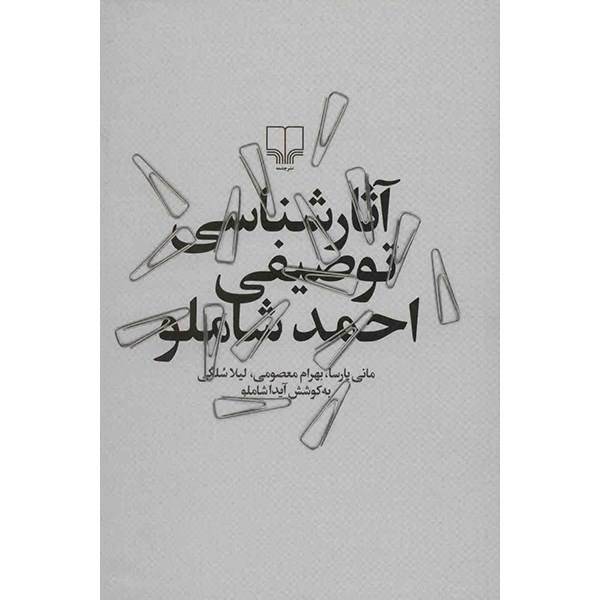 نشرچشمه
آثارشناسی
توصیفی
احمد شاملو
مانی پارسا، بهرام معصومی، لیلا سُلگی
به‌کوشش آیدا شاملو